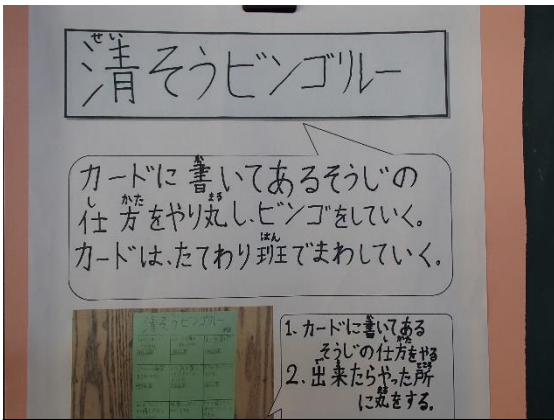 清そうビンゴリレー
カードに書いてあるそうじの
仕方をやり丸し、ビンゴをしていく。
カードは、たてわり班でまわしていく。
清そうビンゴリレー
1. カードに書いてある
そうじの仕方をやる
2. 出来たらやった所
に丸をする。